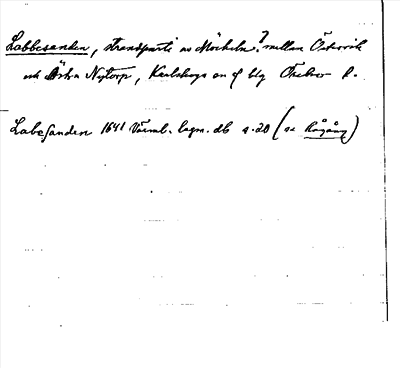 Labbesanden, strandparti av Möckeln? mellan Östervik
och Östra Nytorp, Karlskoga on of blg Örebro l.
Labesanden 1641 Värml. lagm. db s. 20 (se Rågång)